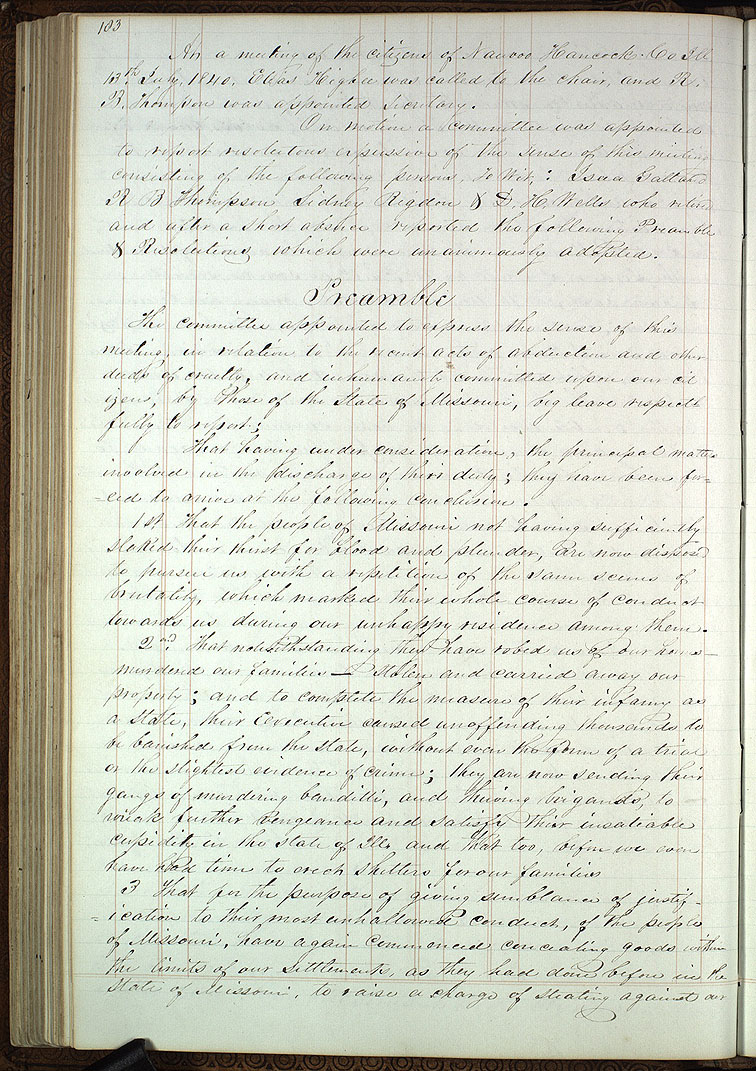 183
At a meeting of the citizens of Nauvoo Hancock Co Ill
13th July, 1840. Elias Higbee was called to the chair, and R.
B. Thompson was appointed Secretary.
On motion a committee was appointed
to report resolutions expressive of the sense of this meeting
consisting of the following persons, To Wit; Isaac Galland
R B Thompson Sidney Rigdon & D. H. Wells who retired
and after a short absence reported the following Preamble
& Resolutions, which were unanimously adopted.
Preamble
The committee appointed to express the sense of this
meeting, in relation to the recent acts of abduction and other
deeds of cruelty, and inhumanity committed upon our cit
izens, by those of the State of Missouri, beg leave respect
fully to report;
That having under consideration, the principal matters
involved in the discharge of their duty; they have been for=
=ced to arrive at the following conclusion.
1st That the people of Missouri not having sufficiently
slaked their thirst for blood and plunder, are now disposed
to pursue us with a repitition of the same scenes of
brutality, which marked their whole course of conduct
towards us during our unhappy residence among them.
2nd That notwithstanding they have robed us of our homes
murdered our families — stolen and carried away our
property; and to complete the measure of their infamy as
a State, their Executive caused unoffending thousands to
be banished from the state, without even the form of a trial
or the slightest evidence of crime; they are now sending their
gangs of murdering banditti, and thieving brigands, to
wreak further vengeance and satisfy their insatiable
cupidity in the state of Ill. and that too, before we even
have had time to erect shelters for our families
3 That for the purpose of giving semblance of justif-
=ication to their most unhallowed conduct, of the people
of Missouri, have again commenced concealing goods within
the limits of our settlements, as they had done before in the
State of Missouri, to raise a charge of stealing against our